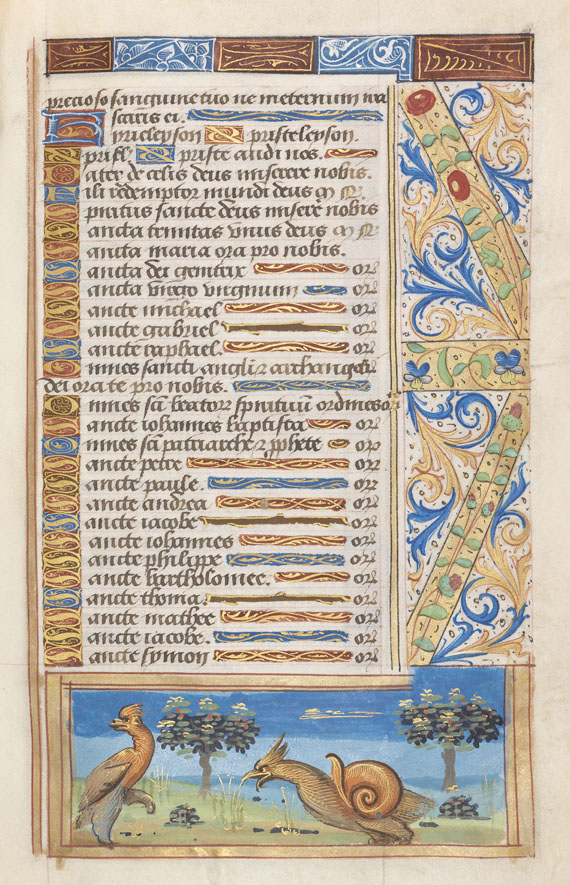 precioso sanguine tuo ne in eternum ira
scaris ei.
Kyrieleyson xpisteleyson.
xpiste audi nos.
Pater de celis deus miserere nobis.
Fili redemptor mundi deus m
Spiritus sancte deus misere nobis
Sancta trinitas vnus deus m
Sancta maria ora pro nobis.
Sancta dei genitrix or
Sancta virgo virginum or
Sancte michael or
Sancte gabriel or
Sancte raphael. or
Omnes sancti angli et archangeli
dei orate pro nobis.
Omnes sci beator spirituum ordines or
Sancte iohannes baptista or
Omnes sci patriarche et pphete or
Sancte petre or
Sancte paule. or
Sancte andrea or
Sancte iacobe or
Sancte iohannes or
Sancte philippe or
Sancte bartholomee. or
Sancte thoma. or
Sancte mathee or
Sancte iacobe. or
Sancte symon or